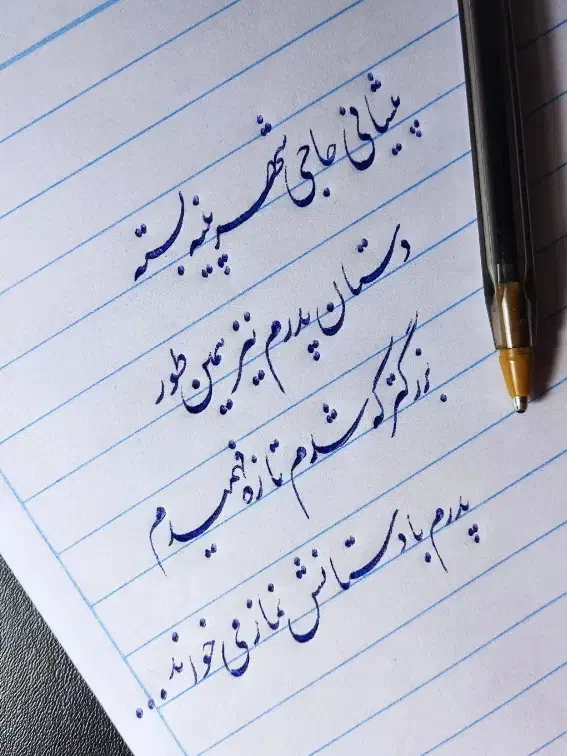 پیشانی حاجی شهر پینه بسته
دستان پدرم نیز همین طور
بزرگتر که شدم تازه فهمیدم
پدرم با دستانش نماز می خواند...